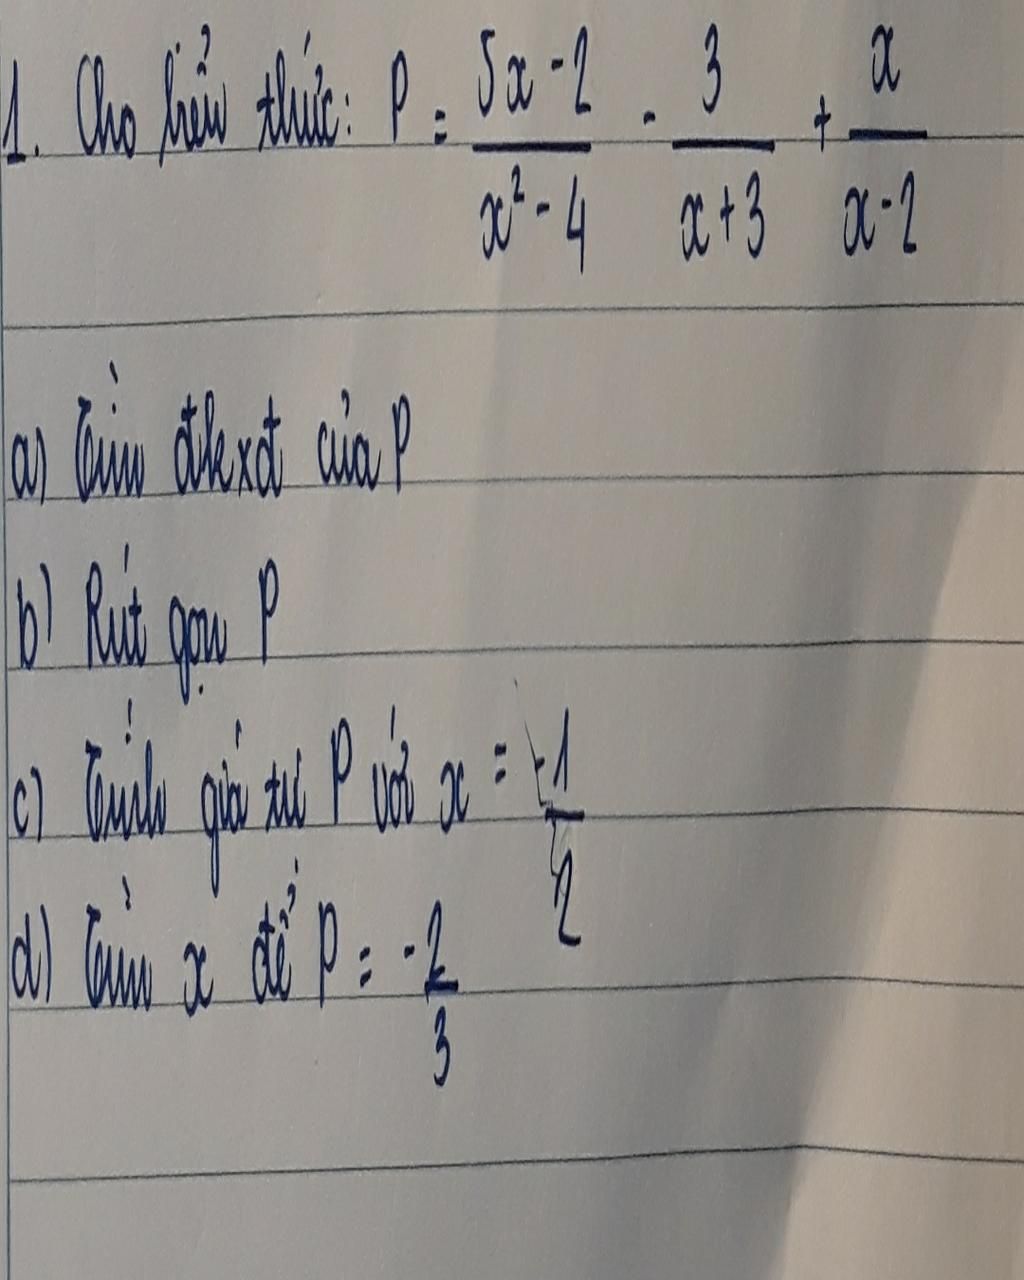 1. Cho biểu thức: P = \frac{5x-2}{x²-4} - \frac{3}{x+3} + \frac{x}{x-2}
a) Tìm đkxđ của P
b) Rút gọn P
c) Tính giá trị P với x = \frac{-1}{2}
d) Tìm x để P = -\frac{2}{3}